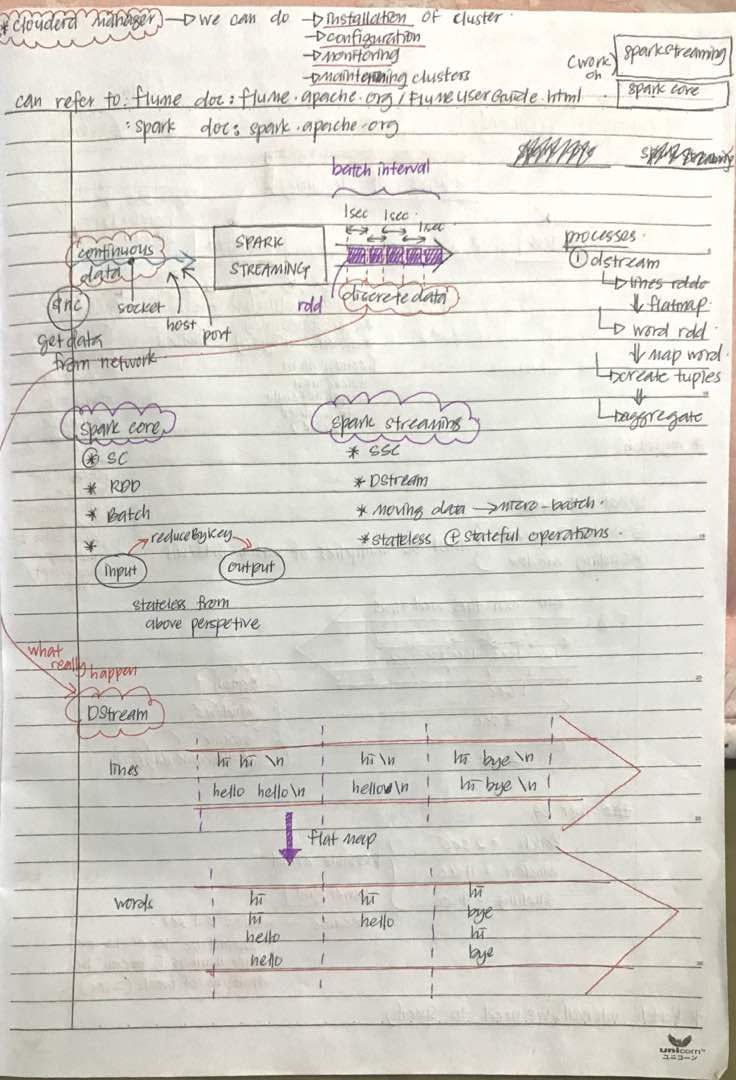 * cloudera manager → we can do → installation of cluster.
→ configuration
→ monitoring
→ maintaining clusters
(work on
sparkstreaming
spark core
can refer to: flume doc: flume.apache.org/FlumeUserGuide.html
: spark doc: spark.apache.org
batch interval
1sec 1sec. 1sec
continuous data
SPARK STREAMING
rdd
discrete data
socket
host
port
get data from network.
processes.
① dstream
→ lines rdd
↓ flatmap.
→ word rdd.
↓ map word.
→ create tuples
↓
→ aggregate
spark core
* SC
* RDD
* Batch
*
input
reduceByKey
output
stateless from
above perspetive
spark streaming
* SSC
* DStream
* moving data → micro-batch.
* stateless & stateful operations.
what really happen
DStream
lines
hi hi \n hi \n hi bye \n
hello hello\n hello\n hi bye \n
flat map
words
hi hi hi
hi hello bye
hello hi
hello bye
unicorn™
ユニコーン